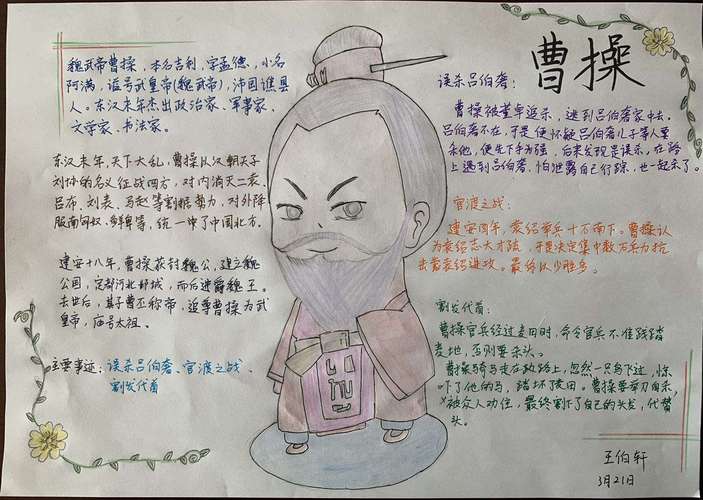 魏武帝曹操，本名吉利，字孟德，小名
阿满，谥号武皇帝(魏武帝)，沛国谯县
人。东汉末年杰出政治家、军事家、
文学家、书法家。
东汉末年，天下大乱，曹操以汉朝天子
刘协的名义征战四方，对内消灭二袁、
吕布、刘表、马超等割据势力，对外降
服南匈奴、鲜卑等，统一中了中国北方。
建安十八年，曹操获封魏公，建立魏
公国，定都河北邺城，而后进爵魏王。
去世后，其子曹丕称帝，追尊曹操为武
皇帝，庙号太祖。
主要事迹：误杀吕伯奢、官渡之战、
割发代首
曹操
误杀吕伯奢：
曹操被董卓追杀，逃到吕伯奢家中去，
吕伯奢不在，于是便怀疑吕伯奢儿子等人要
杀他，便先下手为强，后来发现是误杀，在路
上遇到吕伯奢，怕泄露自己行踪，也一起杀了。
官渡之战：
建安四年，袁绍率兵十万南下。曹操认
为袁绍志大才疏，于是决定集中数万兵力抗
击袁绍进攻。最终以少胜多。
割发代首：
曹操官兵经过麦田时，命令官兵不准践踏
麦地，否则要杀头。
曹操骑马走在政路上，忽然一只鸟飞过，惊
吓了他的马，踏坏了麦田。曹操要举刀自杀，
被众人劝住，最终割下了自己的头发，代替
头。
王伯轩
3月21日